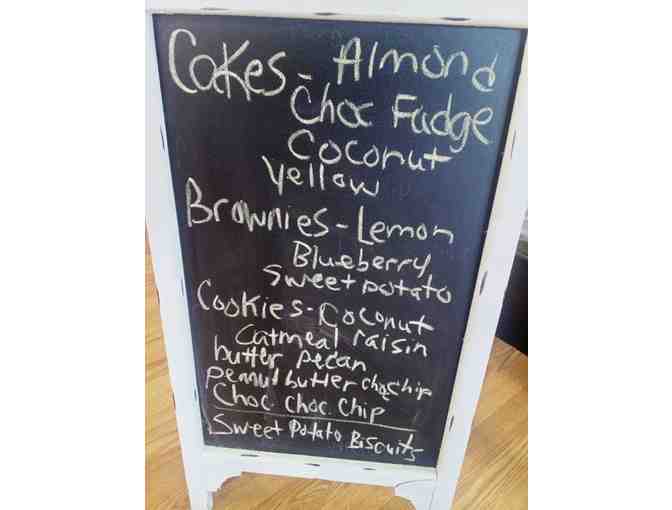 Cakes - Almond
Choc Fudge
Coconut
Yellow
Brownies - Lemon
Blueberry
Sweet potato
Cookies - Coconut
Oatmeal raisin
butter pecan
peanut butter choc chip
Choc. Choc. Chip
Sweet Potato Biscuits